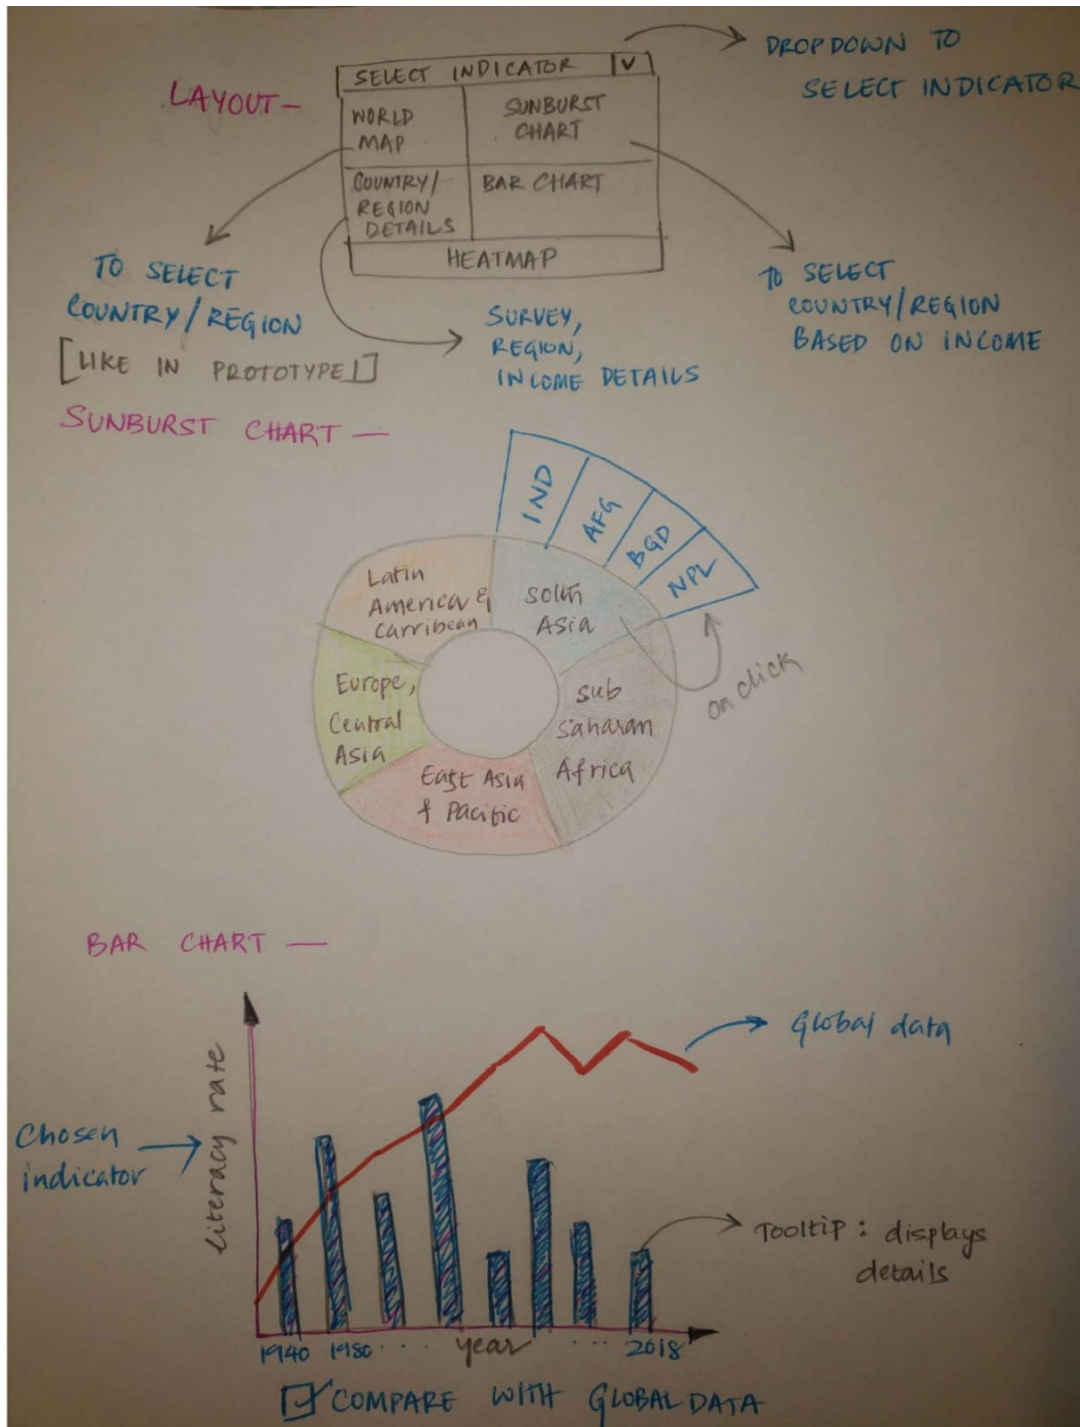 DROPDOWN TO
SELECT INDICATOR
LAYOUT —
SELECT INDICATOR V
WORLD
MAP
SUNBURST
CHART
COUNTRY/
REGION
DETAILS
BAR CHART
HEATMAP
TO SELECT
COUNTRY/REGION
[LIKE IN PROTOTYPE 1]
SURVEY,
REGION,
INCOME DETAILS
TO SELECT
COUNTRY/REGION
BASED ON INCOME
SUNBURST CHART —
IND
AFG
BGD
NPL
Latin
America &
Carribean
South
Asia
Europe,
Central
Asia
Sub
Saharan
Africa
East Asia
& Pacific
on click
BAR CHART —
Global data
literacy rate
Chosen
indicator
Tooltip : displays
details
1940 1980 . . . year . . . 2018
COMPARE WITH GLOBAL DATA